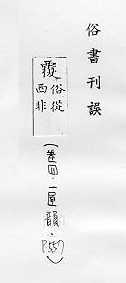 俗書刊誤
覆
俗從
西非
(卷四·一屋韻·